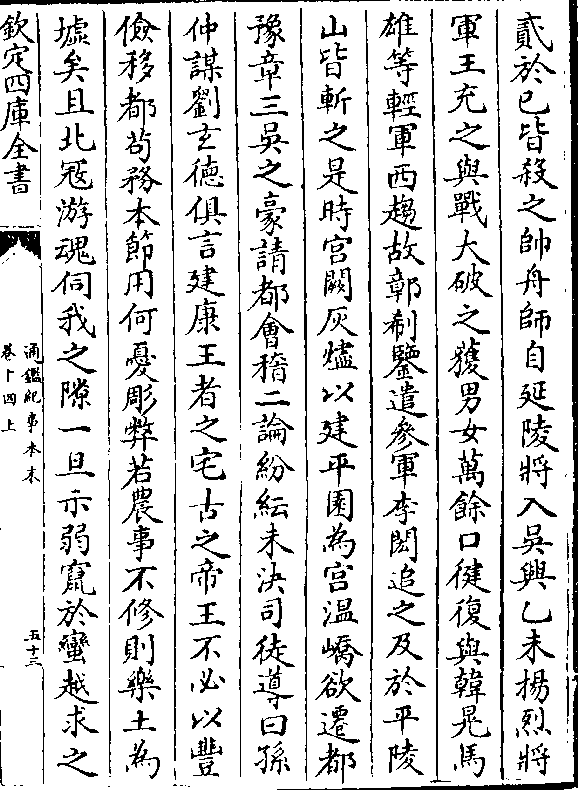 貳於己皆殺之帥舟師自延陵將入吳興乙未揚烈將
軍王充之與戰大破之獲男女萬餘口健復與韓晃馬
雄等輕軍西趨故鄣郗鑒遣參軍李閎追之及於平陵
山皆斬之是時宮闕灰燼以建平園為宮溫嶠欲遷都
豫章三吳之豪請都會稽二論紛紜未決司徒導曰孫
仲謀劉玄德俱言建康王者之宅古之帝王不必以豐
儉移都苟務本節用何憂彫弊若農事不修則樂土為
墟矣且北寇游魂伺我之隙一旦示弱竄於蠻越求之
欽定四庫全書
通鑑紀事本末
卷十四上
五十三